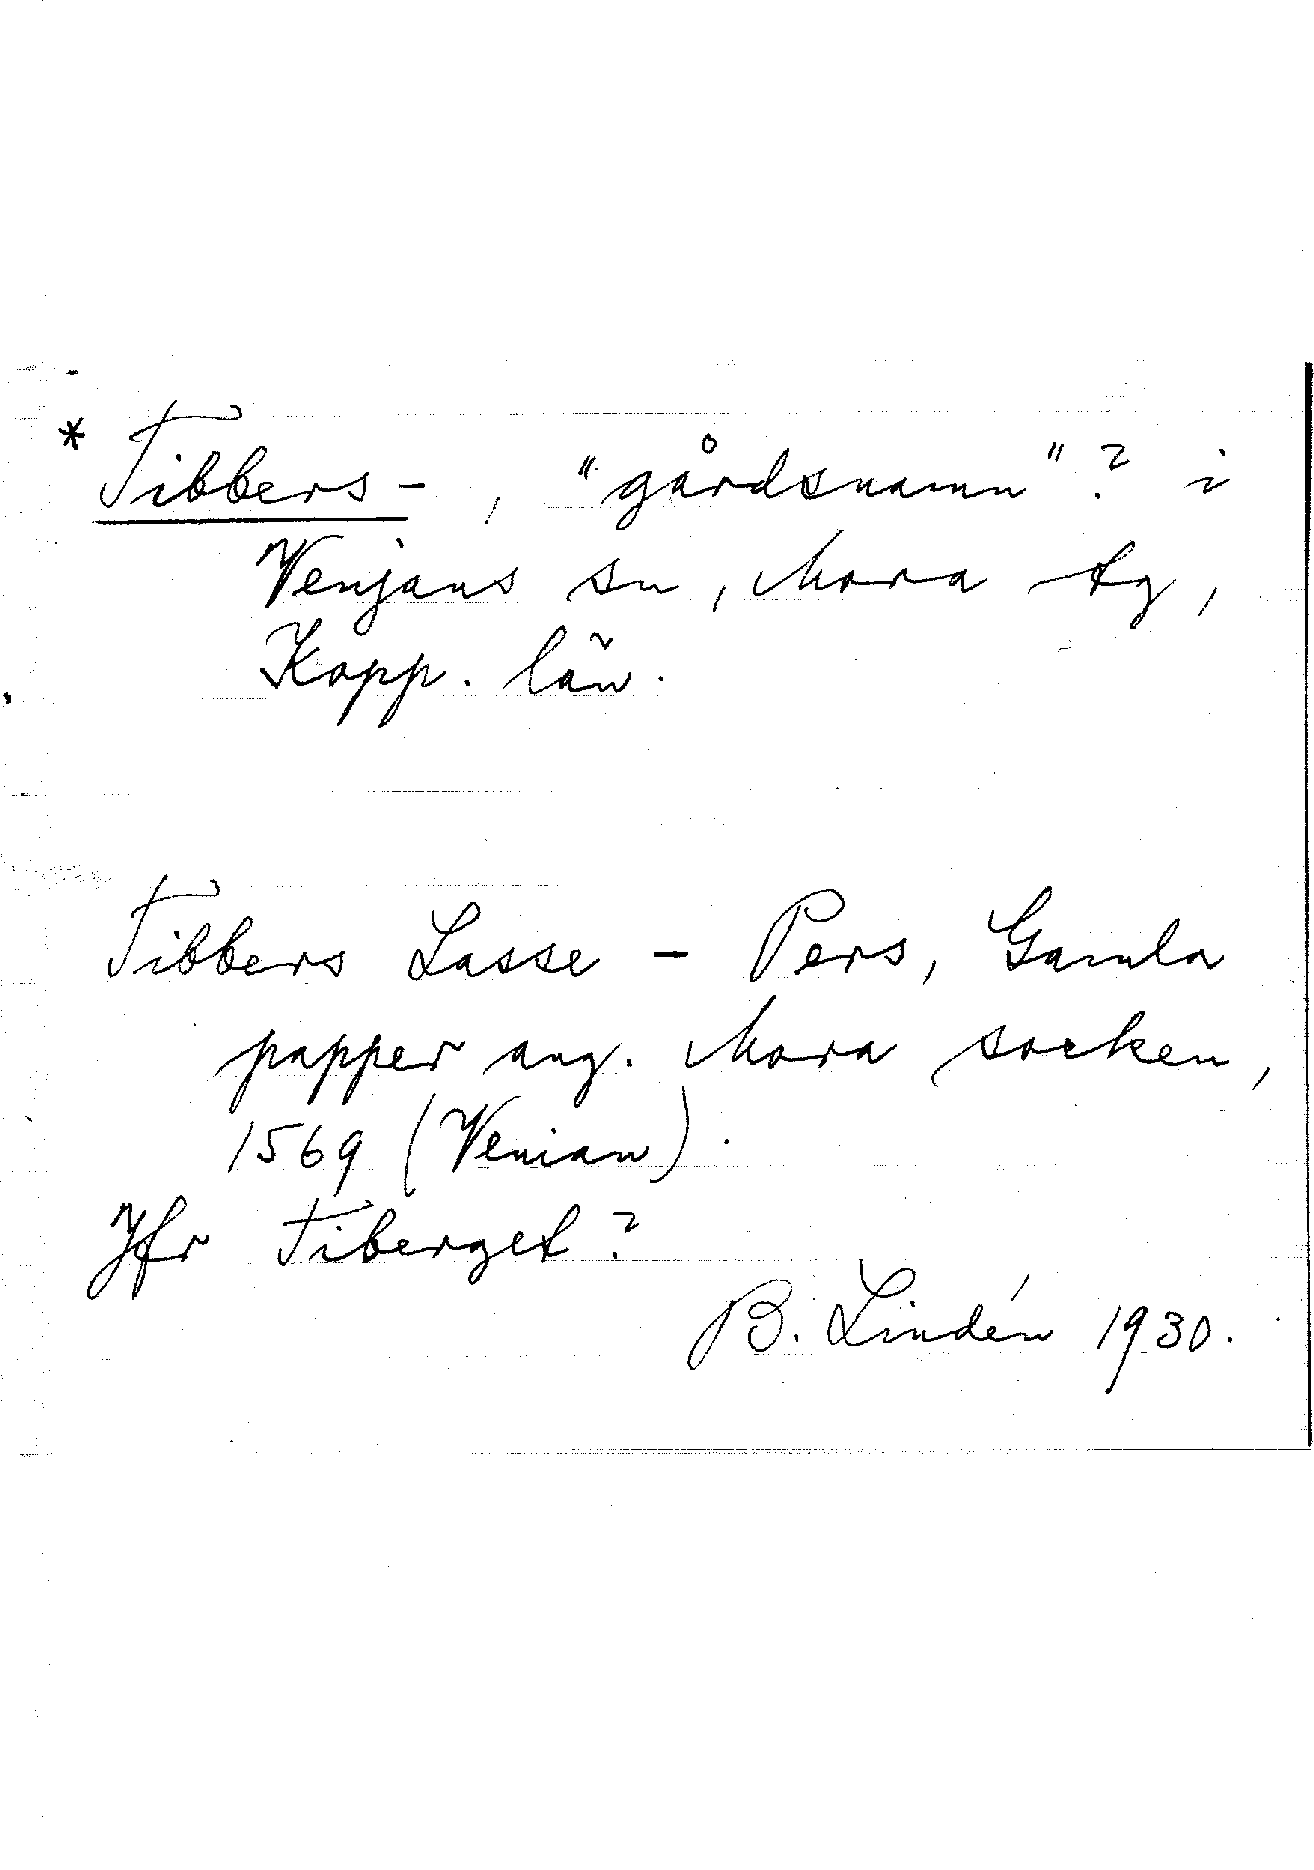 * Tibbers-, "gårdsnamn"? i
Venjans sn, Mora tg,
Kopp. län.
Tibbers Lasse - Pers, Gamla
papper ang. Mora socken,
1569 (Venian).
Jfr Tiberget?
B. Lindén 1930.